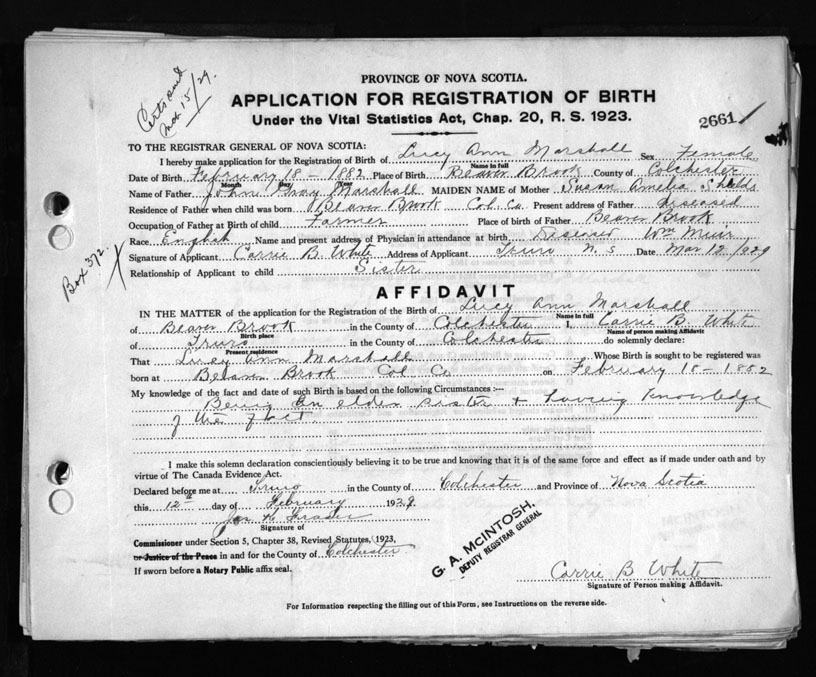 Certs and
Mar 15/29.
PROVINCE OF NOVA SCOTIA.
APPLICATION FOR REGISTRATION OF BIRTH
Under the Vital Statistics Act, Chap. 20, R. S. 1923.
2661
TO THE REGISTRAR GENERAL OF NOVA SCOTIA:
I hereby make application for the Registration of Birth of Lucy Ann Marshall Sex Female
Name in full
Date of Birth February 18 - 1882 Place of Birth Beaver Brook County of Colchester
Month Day Year
Name of Father John Gray Marshall MAIDEN NAME of Mother Susan Amelia Shields
Residence of Father when child was born Beaver Brook Col. Co. Present address of Father diseased
Occupation of Father at Birth of child Farmer Place of birth of Father Beaver Brook
Race English Name and present address of Physician in attendance at birth Diseased Wm Muir
Signature of Applicant Carrie B. White Address of Applicant Truro N. S Date Mar 12/1929
Relationship of Applicant to child Sister
Box 372.
AFFIDAVIT
IN THE MATTER of the application for the Registration of the Birth of Lucy Ann Marshall
Name in full
of Beaver Brook in the County of Colchester I, Carrie B. Whit
Birth place Name of person making Affidavit
of Truro in the County of Colchester do solemnly declare:
Present residence
That Lucy Ann Marshall Whose Birth is sought to be registered was
born at Beaver Brook Col Co on February 18 - 1882
My knowledge of the fact and date of such Birth is based on the following Circumstances :—
Being an elder sister & having knowledge
of the fact.
I make this solemn declaration conscientiously believing it to be true and knowing that it is of the same force and effect as if made under oath and by
virtue of The Canada Evidence Act.
Declared before me at Truro in the County of Colchester and Province of Nova Scotia
this 12th day of February 1929.
Signature of
Commissioner under Section 5, Chapter 38, Revised Statutes, 1923,
or Justice of the Peace in and for the County of Colchester
If sworn before a Notary Public affix seal.
G. A. McINTOSH,
DEPUTY REGISTRAR GENERAL
Carrie B White
Signature of Person making Affidavit.
For Information respecting the filling out of this Form, see Instructions on the reverse side.